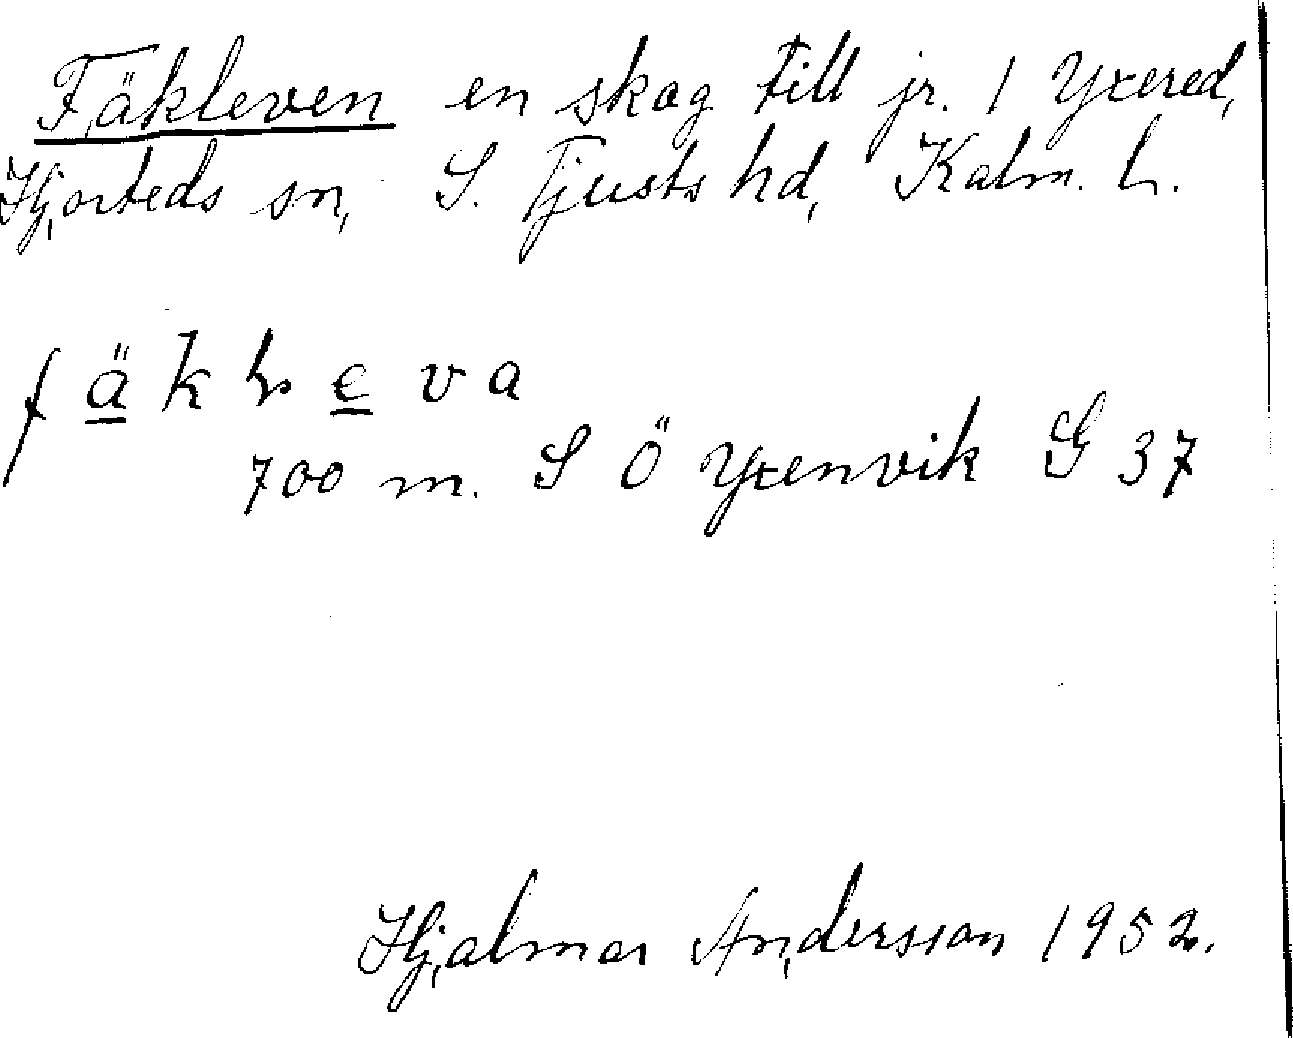 Fäkleven en skog till jr. 1 Yxered,
Hjorteds sn, S. Tjusts hd, Kalm. L.
f ä k l e v a
700 m. S Ö Yxenvik G 37
Hjalmar Andersson 1952.